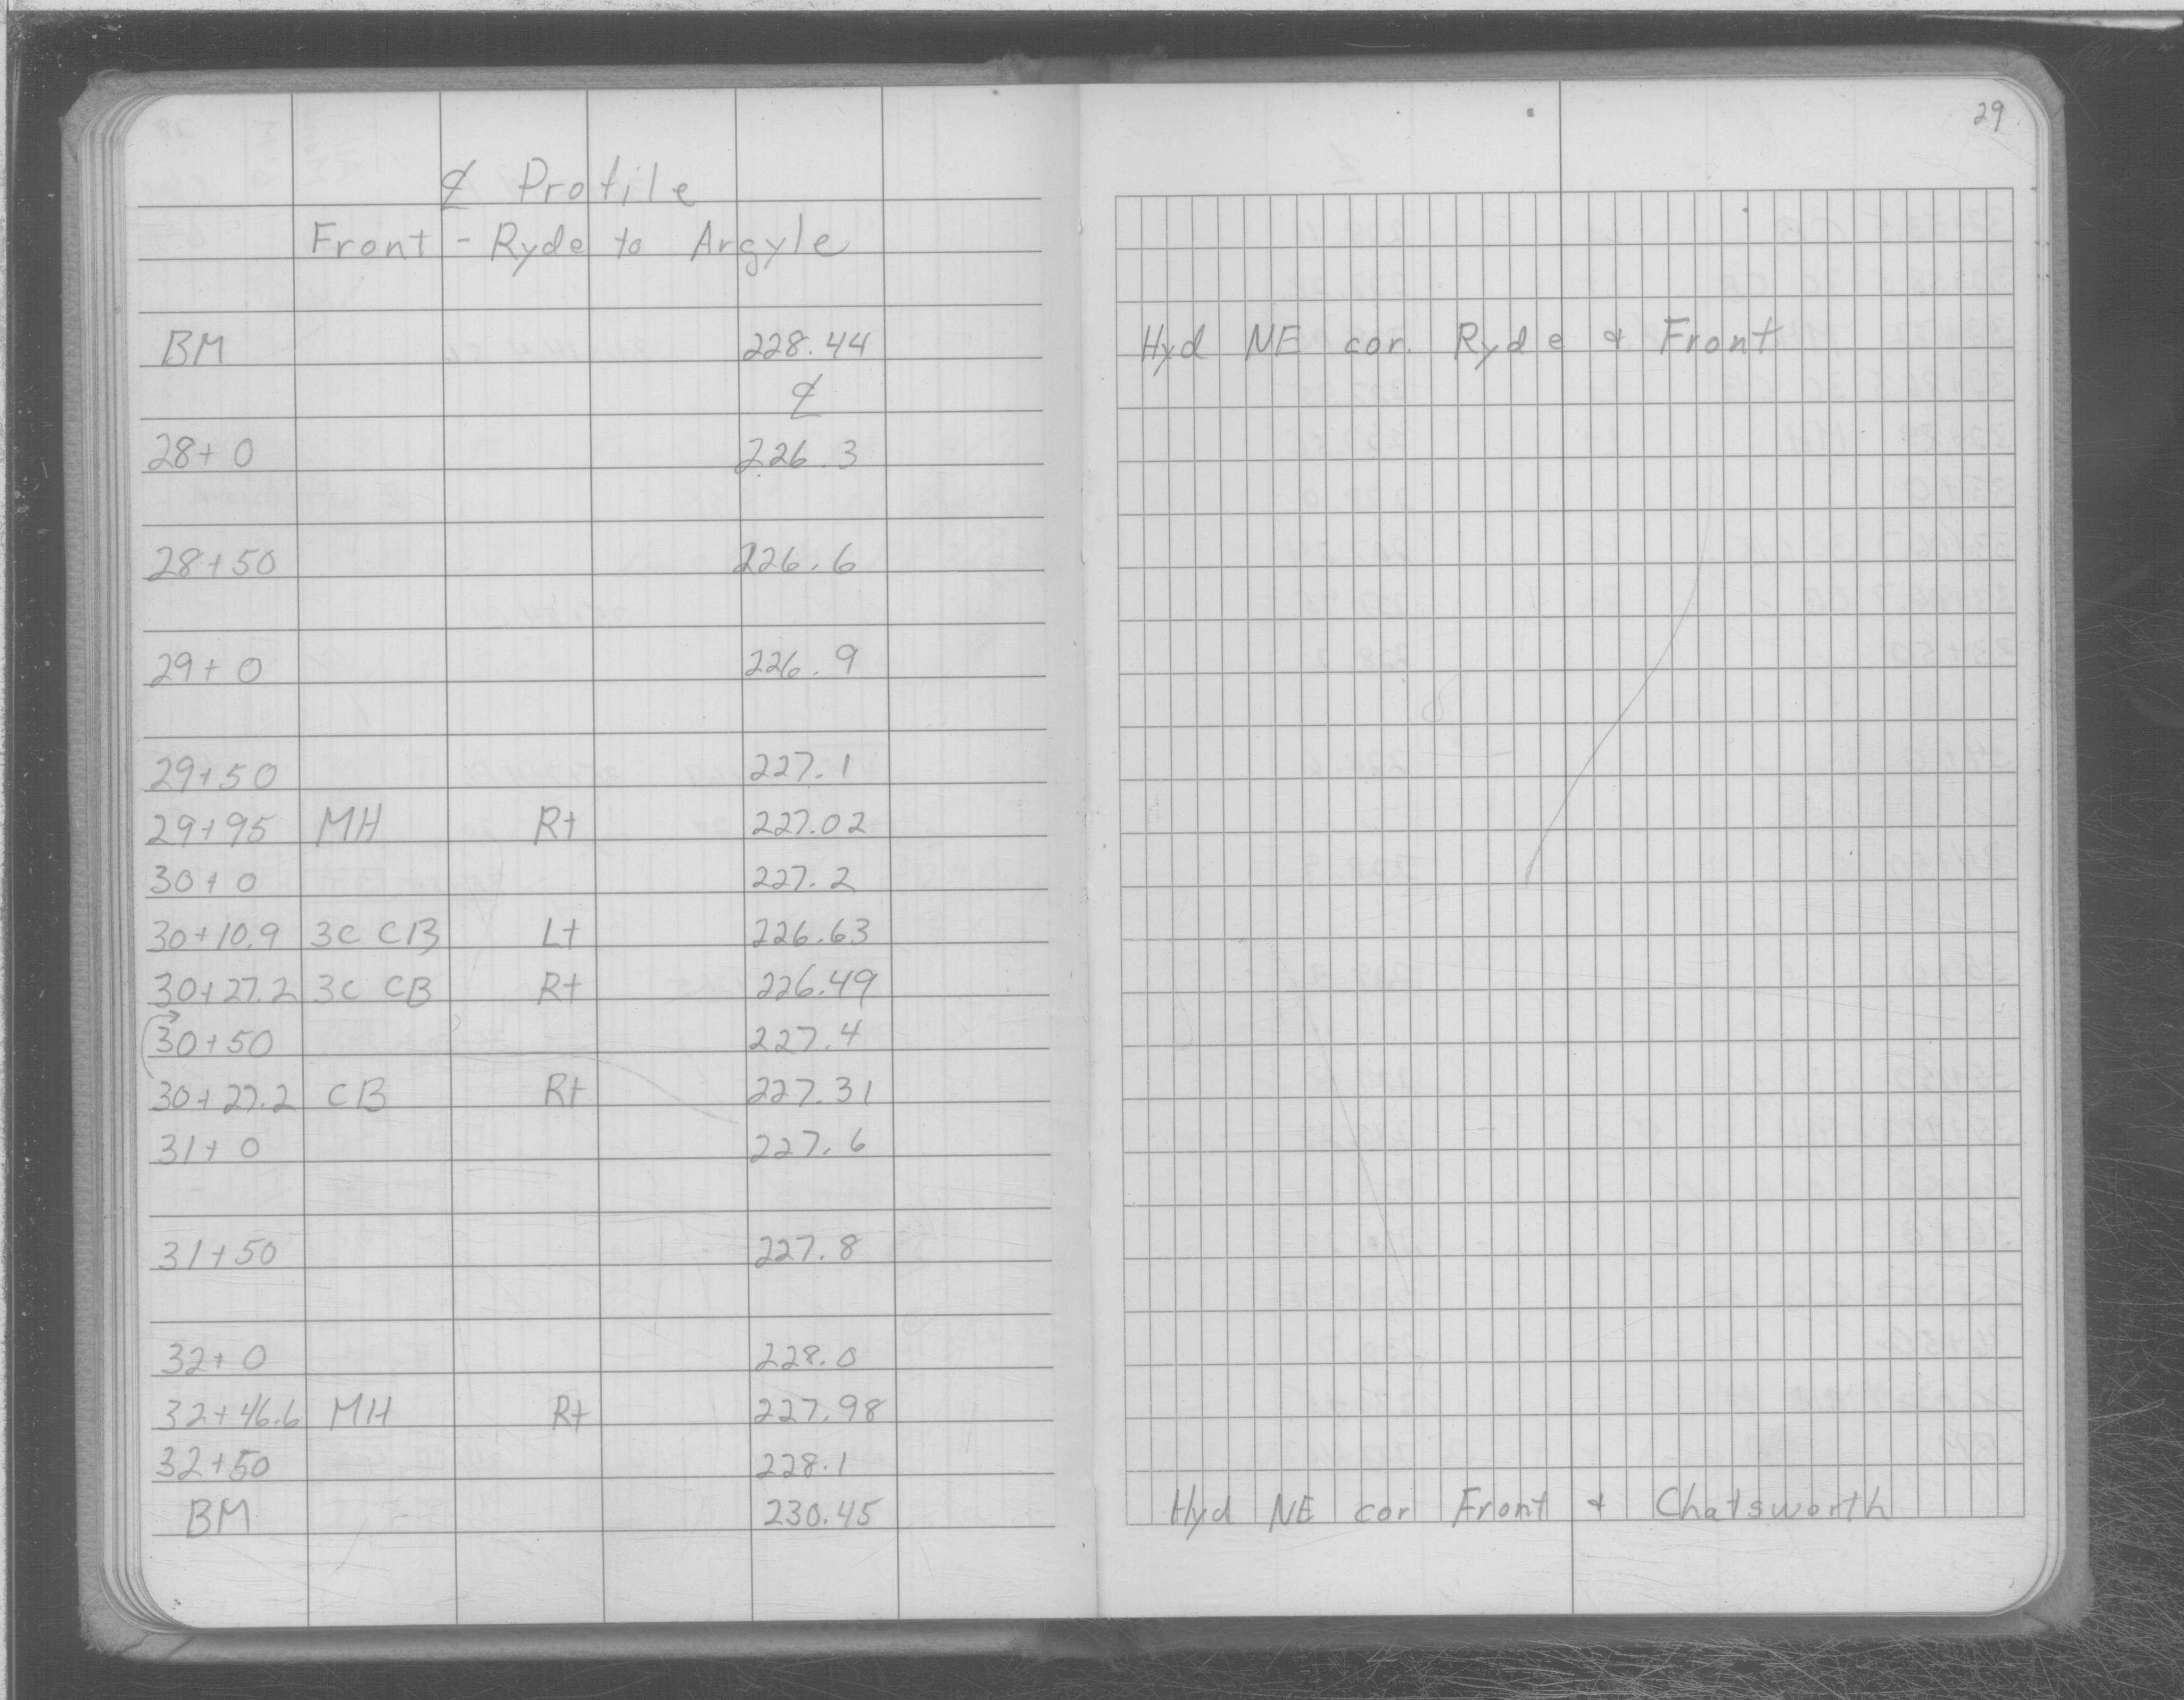 29
℄ Profile
Front - Ryde to Argyle
BM 228.44 Hyd NE cor. Ryde & Front
℄
28+0 226.3
28+50 226.6
29+0 226.9
29+50 227.1
29+95 MH Rt 227.02
30+0 227.2
30+10.9 3C CB Lt 226.63
30+27.2 3C CB Rt 226.49
30+50 227.4
30+27.2 CB Rt 227.31
31+0 227.6
31+50 227.8
32+0 228.0
32+46.6 MH Rt 227.98
32+50 228.1
BM 230.45 Hyd NE cor Front & Chatsworth